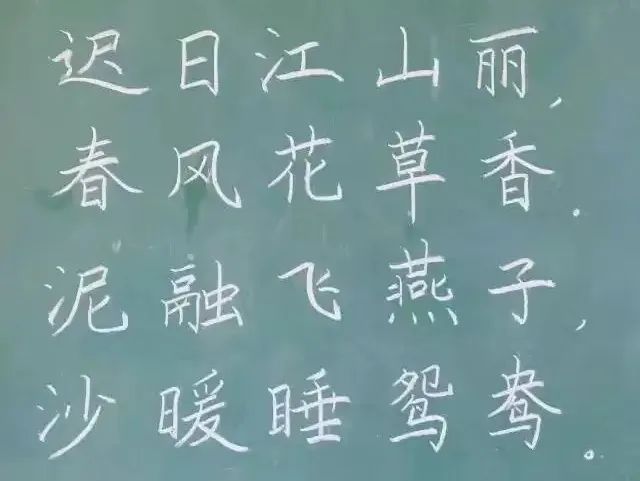 迟日江山丽,
春风花草香.
泥融飞燕子,
沙暖睡鸳鸯。